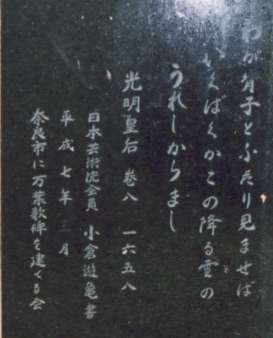 わが背子とふたり見ませば
いくばくかこの降る雪の
うれしからまし
光明皇后 巻八 一六五八
日本芸術院会員 小倉遊亀書
平成七年三月
奈良市に万葉歌碑を建てる会